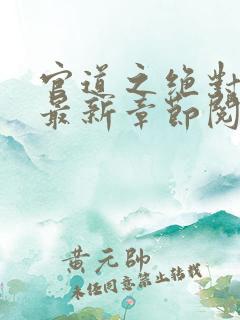 官道之绝對
最新章節閱
黄元帥
未经同意禁止转载